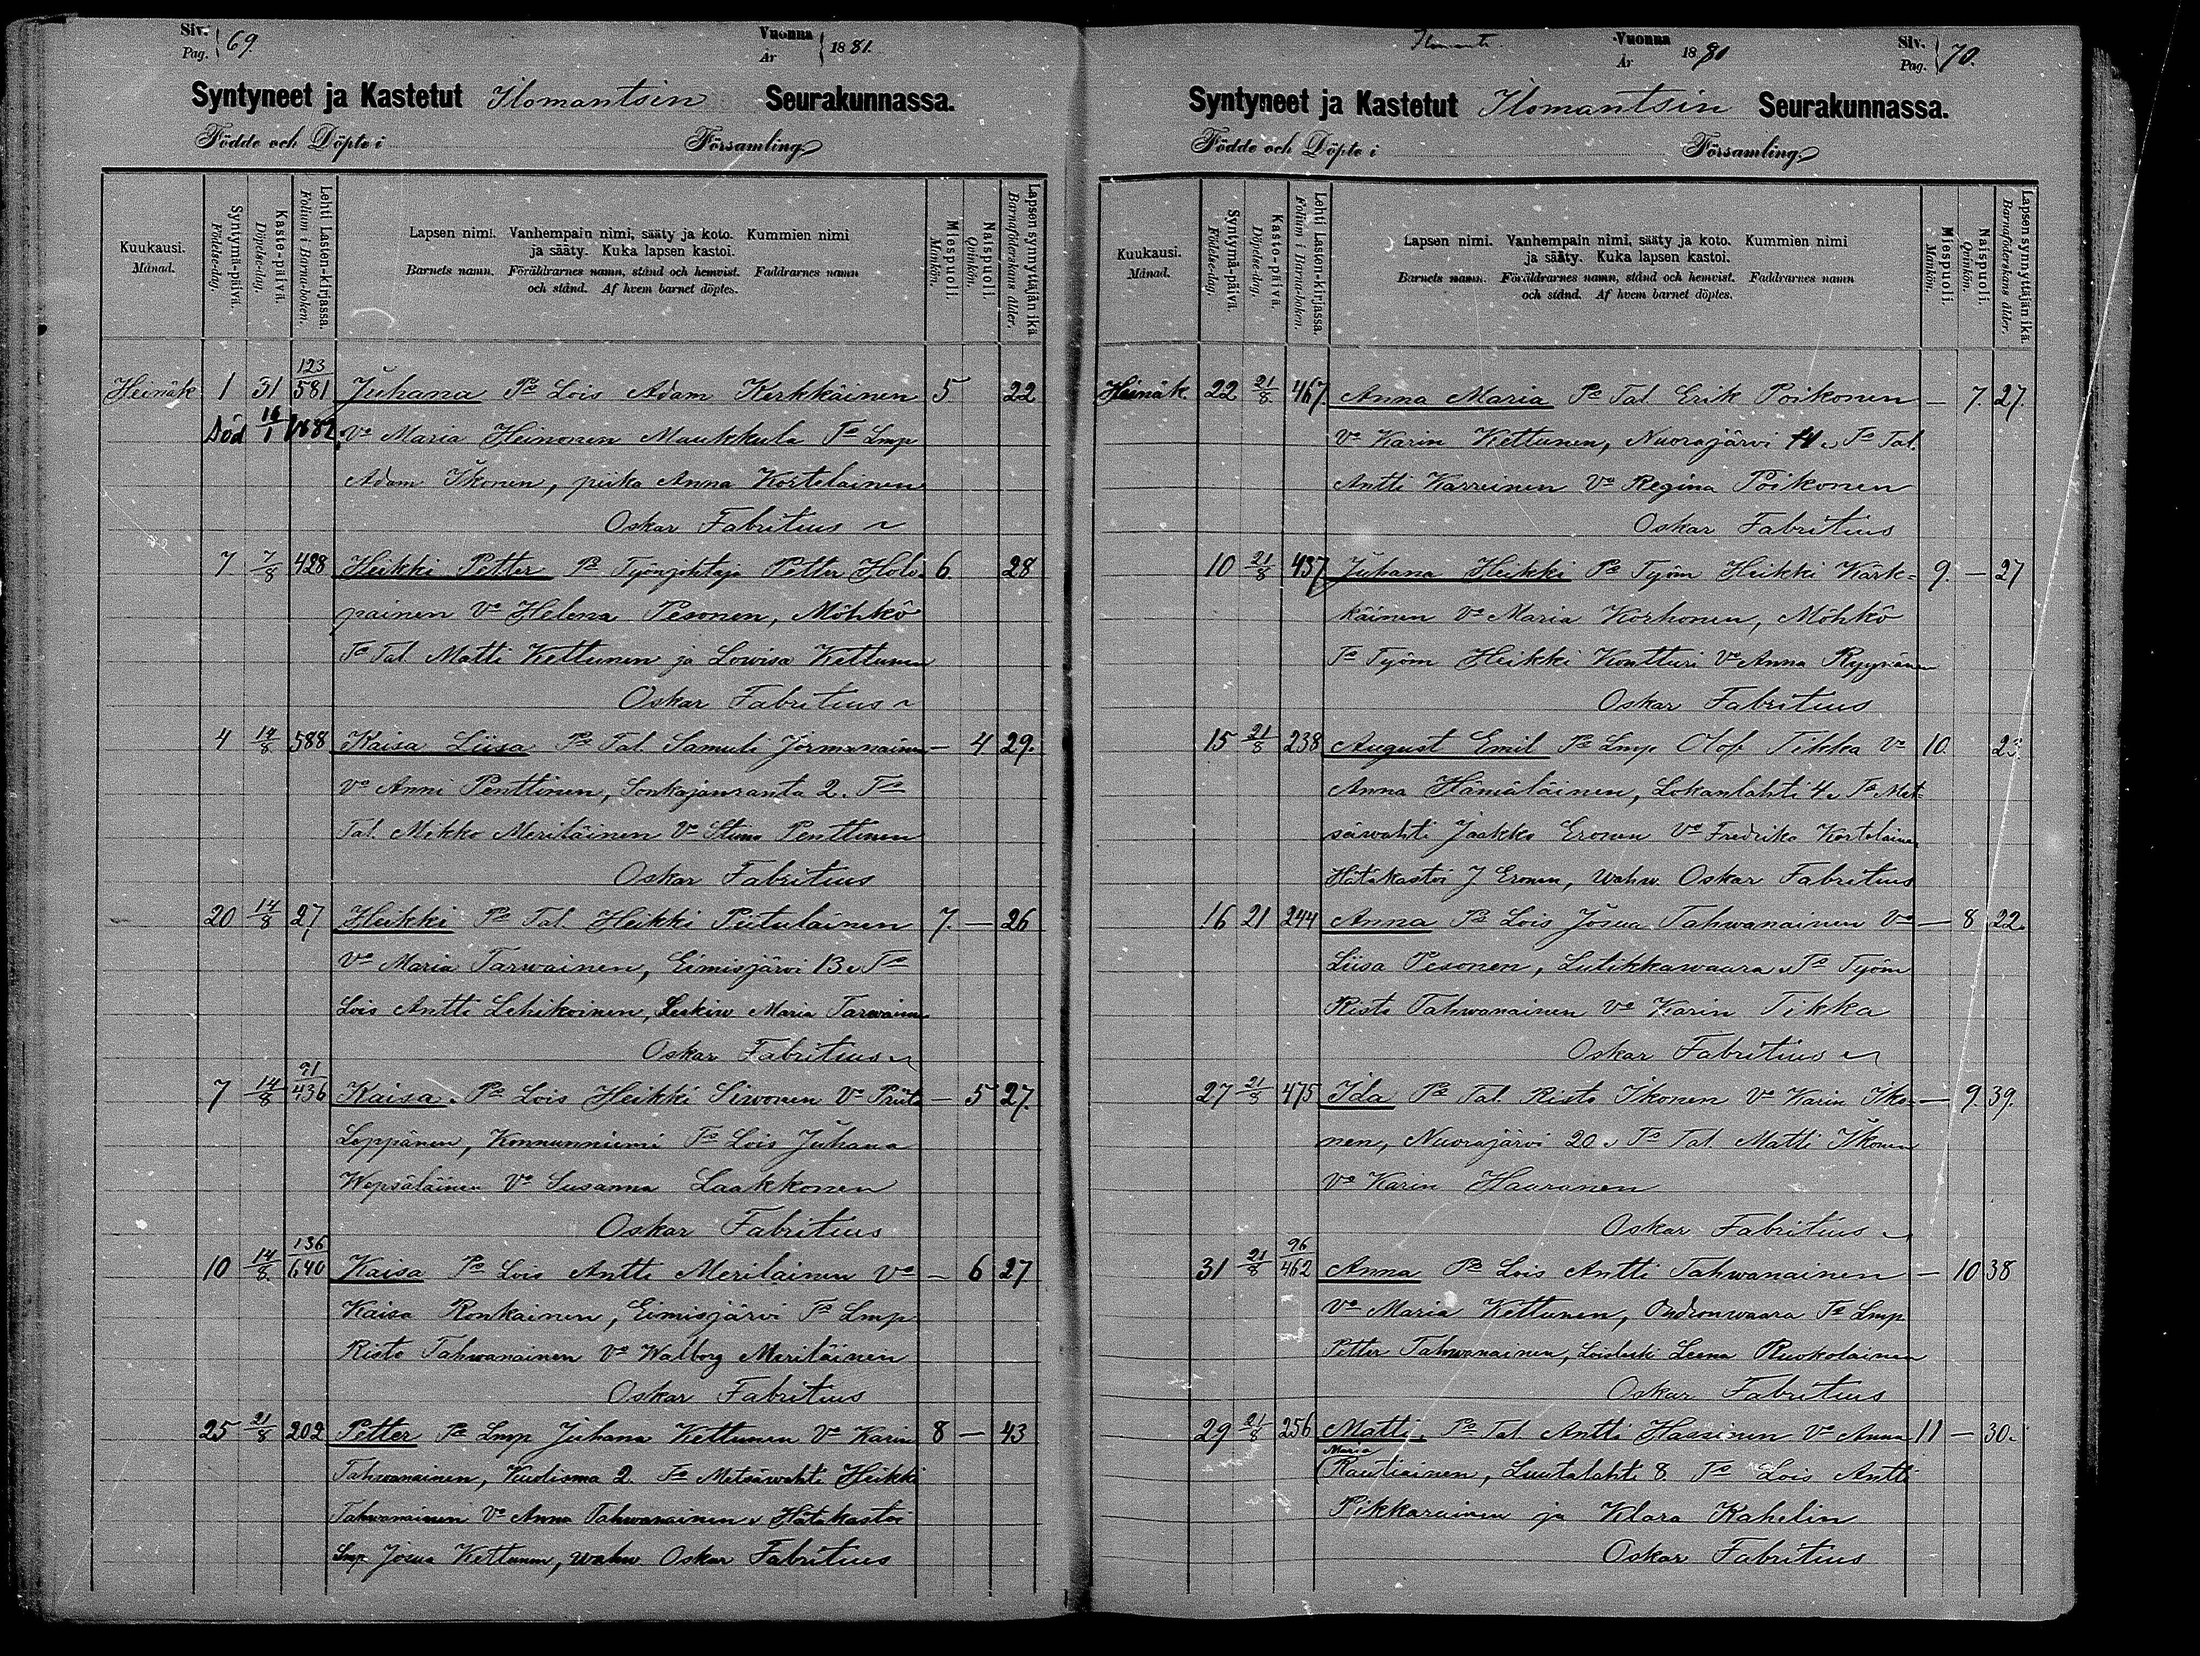 Siv. Pag. 69. Vuonna År 1881.
Syntyneet ja Kastetut Ilomantsin Seurakunnassa.
Födde och Döpte i Församling.
Kuukausi. Månad.
Syntymä-päivä. Födelse-dag.
Kaste-päivä. Döpelse-dag.
Lehti Lasten-kirjassa. Folium i Barna-boken.
Lapsen nimi. Vanhempain nimi, sääty ja koto. Kummien nimi
ja sääty. Kuka lapsen kastoi.
Barnets namn. Föräldrarnes namn, stånd och hemvist. Faddrarnes namn
och stånd. Af hvem barnet döptes.
Miespuoli. Mankön.
Naispuoli. Qvinkön.
Lapsen synnyttäjän ikä Barnaföderskans ålder.
123
Heinäk 1 31 581 Juhana Po Lois Adam Kerkkäinen 5 22
död 16/1 1882. Vo Maria Heinonen Maukkula To Lmp
Adam Ikonen, piika Anna Kortelainen
Oskar Fabritius
7 7/8 428 Heikki Petter Po Työnjohtaja Petter Holo- 6 28
painen Vo Helena Pesonen, Möhkö
To Tal. Matti Kettunen ja Lowisa Kettunen
Oskar Fabritius
4 14/8 588 Kaisa Liisa Po Tal Samuli Jormanainen — 4 29.
Vo Anni Penttinen, Sonkajanranta 2. To
Tal. Mikko Meriläinen Vo Stina Penttinen
Oskar Fabritius
20 14/8 27 Heikki Po Tal. Heikki Piitulainen 7. — 26
Vo Maria Tarwainen, Eimisjärvi 13. To
Lois Antti Lehikoinen, Leskiw Maria Tarwainen
Oskar Fabritius
91
7 14/8 436 Kaisa. Po Lois Heikki Siwonen Vo Priita — 5 27.
Leppänen, Konnunniemi To Lois Juhana
Wepsäläinen Vo Susanna Laakkonen
Oskar Fabritius
136
10 14/8. 640 Kaisa Po Lois Antti Meriläinen Vo — 6 27
Kaisa Ronkainen, Eimisjärvi To Lmp
Risto Tahwanainen Vo Walborg Meriläinen
Oskar Fabritius
25 21/8 202 Petter Po Lmp Juhana Kettunen Vo Karin 8 — 43
Tahwanainen, Kuolisma 2. To Metsäwahti Heikki
Tahwanainen Vo Anna Tahwanainen. Hätäkastoi
Lmp Josua Kettunen, wahw Oskar Fabritius
Vuonna År 1881 Siv. Pag. 70.
Syntyneet ja Kastetut Ilomantsin Seurakunnassa.
Födde och Döpte i Församling.
Kuukausi. Månad.
Syntymä-päivä. Födelse-dag.
Kasto-päivä. Döpelse-dag.
Lehti Lasten-kirjassa. Folium i Barna-boken.
Lapsen nimi. Vanhempain nimi, sääty ja koto. Kummien nimi
ja sääty. Kuka lapsen kastoi.
Barnets namn. Föräldrarnes namn, stånd och hemvist. Faddrarnes namn
och stånd. Af hvem barnet döptes.
Miespuoli. Mankön.
Naispuoli. Qvinkön.
Lapsen synnyttäjän ikä Barnaföderskans ålder.
Heinäk. 22 21/8. 467 Anna Maria Po Tal. Erik Poikonen — 7. 27.
Vo Karin Kettunen, Nuorajärvi To Tal.
Antti Karreinen Vo Regina Poikonen
Oskar Fabritius
10 21/8 437 Juhana Heikki Po Työm Heikki Kärk- 9. — 27
käinen Vo Maria Korhonen, Möhkö
To Työm Heikki Kontturi Vo Anna Ryynänen
Oskar Fabritius
15 21/8 238 August Emil Po Lmp Olof Tikka Vo 10. 23.
Anna Hämäläinen, Lokanlahti 4. To Met-
säwahti Jaakko Eronen Vo Fredrika Kortelainen
Hätäkastoi J Eronen, wahw. Oskar Fabritius
16 21 244 Anna Po Lois Josua Tahwanainen Vo — 8 22.
Liisa Pesonen, Lutikkawaara. To Työm
Risto Tahwanainen Vo Karin Tikka
Oskar Fabritius
27 21/8 475 Ida Po Tal. Risto Ikonen Vo Karin Iko- — 9. 39.
nen, Nuorajärvi 20. To Tal. Matti Ikonen
Vo Karin Hauranen
Oskar Fabritius
96
31 21/8 462 Anna Po Lois Antti Tahwanainen — 10 38
Vo Maria Kettunen, Ondronwaara To Lmp
Petter Tahwanainen, Loisleski Leena Ruokolainen
Oskar Fabritius
29 21/8 256 Matti. Po Tal Antti Hassinen Vo Anna 11 — 30.
Maria
Rautiainen, Luutalahti 8. To Lois Antti
Pikkarainen ja Klara Kahelin
Oskar Fabritius